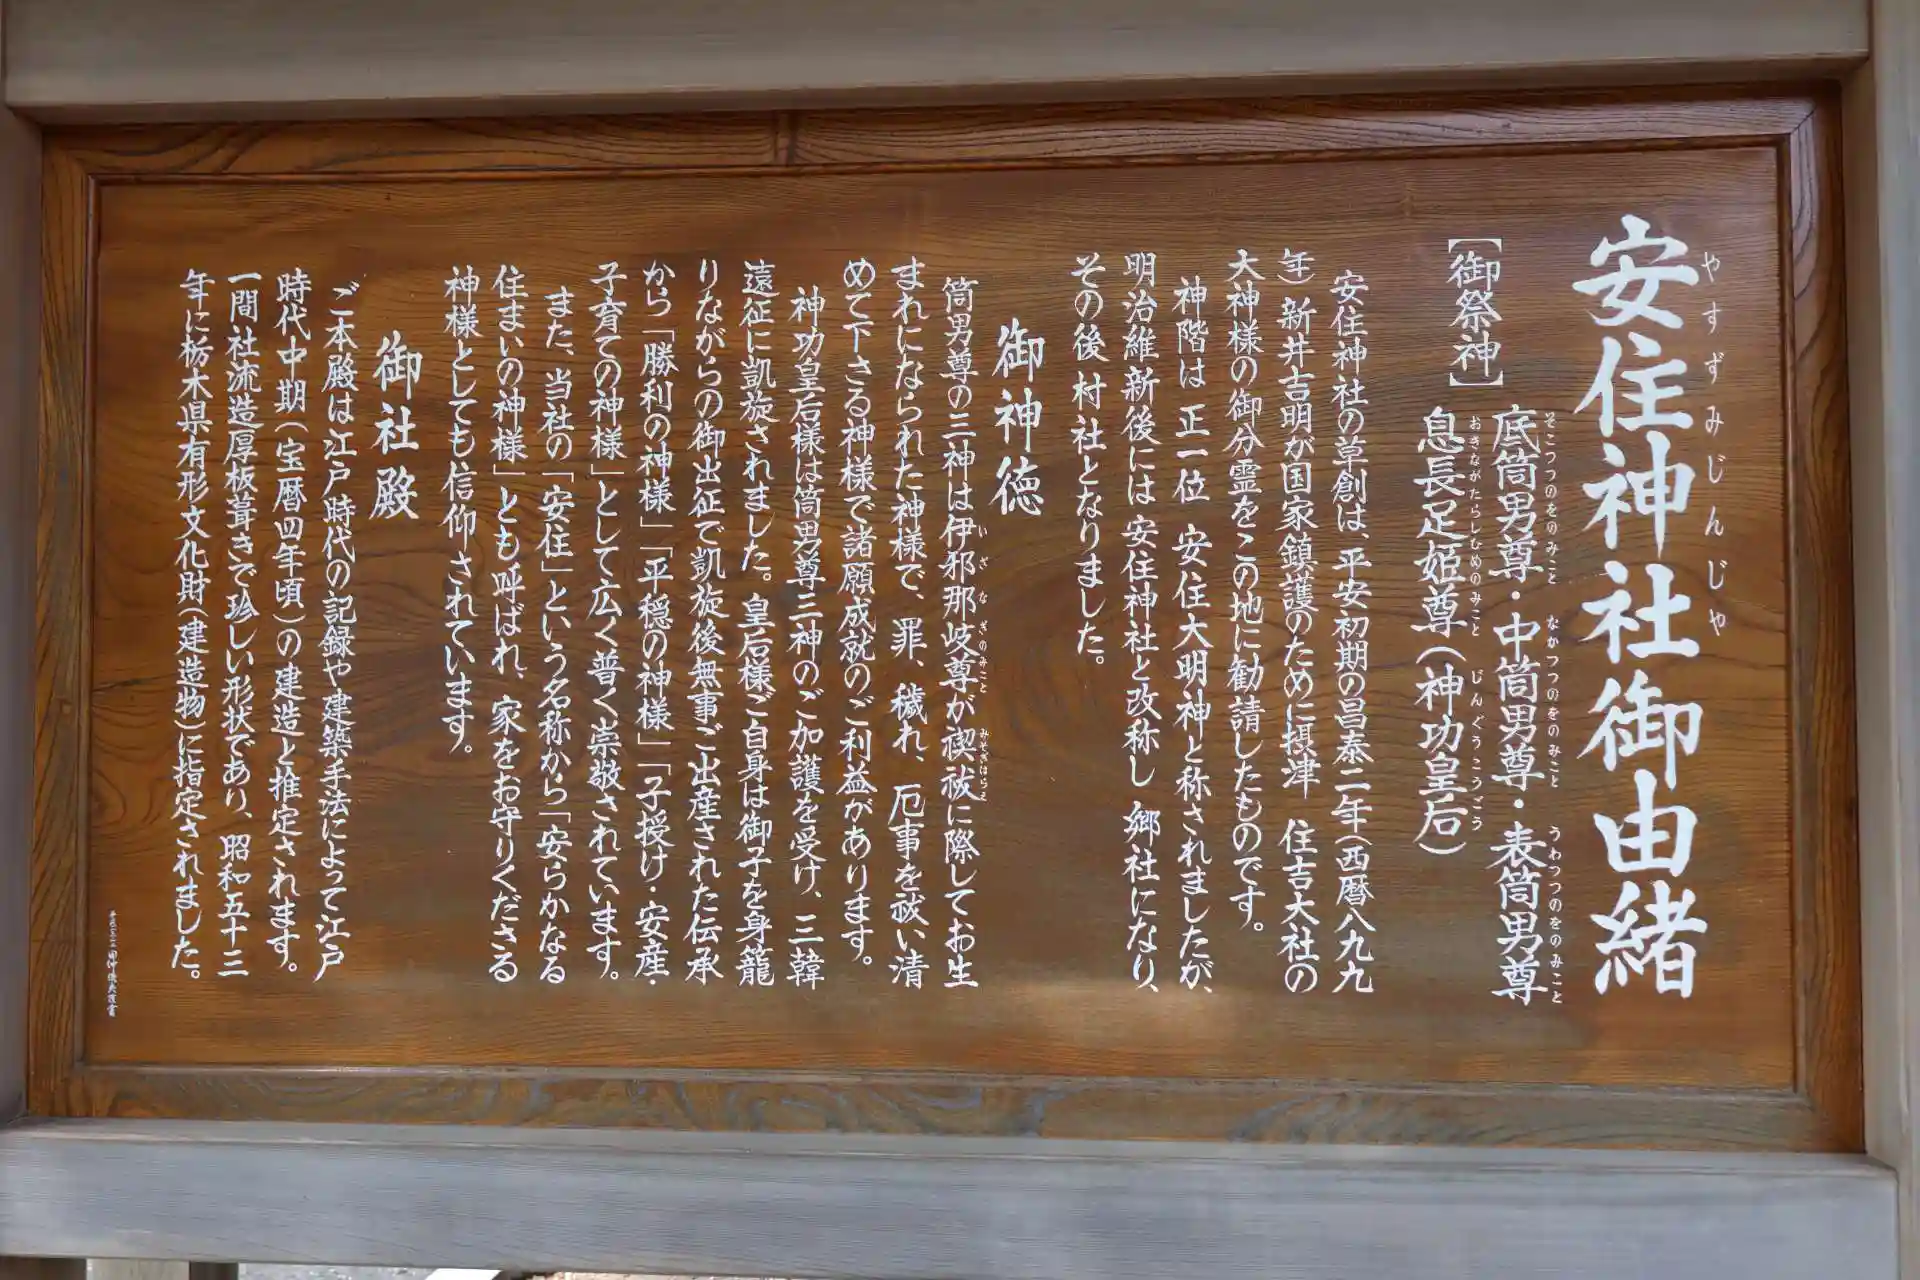 安住神社御由緒
やすずみじんじゃ
【御祭神】
底筒男尊・中筒男尊・表筒男尊
そこつつのをのみこと なかつつのをのみこと うわつつのをのみこと
息長足姫尊(神功皇后)
おきながたらしひめのみこと じんぐうこうごう
安住神社の草創は、平安初期の昌泰二年(西暦八九九
年)新井吉明が国家鎮護のために摂津 住吉大社の
大神様の御分霊をこの地に勧請したものです。
神階は 正一位 安住大明神と称されましたが、
明治維新後には 安住神社と改称し 郷社になり、
その後 村社となりました。
御神徳
筒男尊の三神は伊邪那岐尊が禊祓に際してお生
いざなぎのみこと みそぎはらえ
まれになられた神様で、罪、穢れ、厄事を祓い清
めて下さる神様で諸願成就のご利益があります。
神功皇后様は筒男尊三神のご加護を受け、三韓
遠征に凱旋されました。皇后様ご自身は御子を身籠
りながらの御出征で凱旋後無事ご出産された伝承
から「勝利の神様」「平穏の神様」「子授け・安産・
子育ての神様」として広く普く崇敬されています。
また、当社の「安住」という名称から「安らかなる
住まいの神様」とも呼ばれ、家をお守りくださる
神様としても信仰されています。
御社殿
ご本殿は江戸時代の記録や建築手法によって江戸
時代中期(宝暦四年頃)の建造と推定されます。
一間社流造厚板葺きで珍しい形状であり、昭和五十三
年に栃木県有形文化財(建造物)に指定されました。